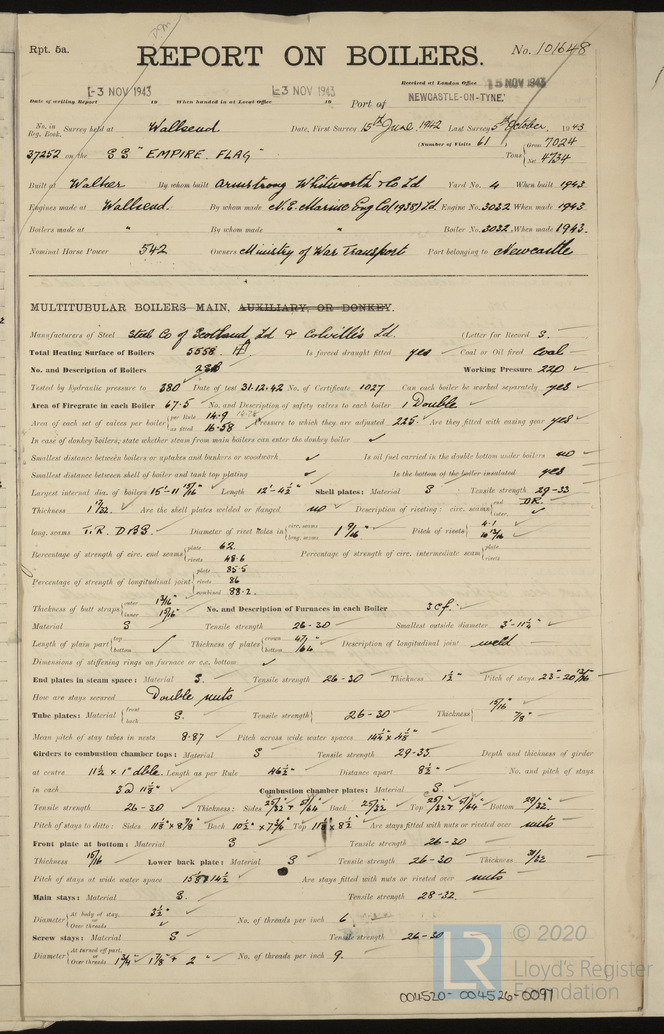 Rpt. 5a.
REPORT ON BOILERS.
No. 101648
-3 NOV 1943
-3 NOV 1943
Received at London Office 15 NOV 1943
Date of writing Report 19 When handed in at Local Office 19 Port of NEWCASTLE-ON-TYNE.
No. in Reg. Book. Survey held at Wallsend Date, First Survey 15th June, 1942 Last Survey 5th October, 1943
(Number of Visits 61) Gross 7024
37252 on the SS "EMPIRE FLAG" Tons Net 4734
Built at Walker By whom built Armstrong Whitworth & Co Ld Yard No. 4 When built 1943
Engines made at Wallsend. By whom made N.E. Marine Eng Co (1938) Ld Engine No. 3032 When made 1943
Boilers made at " By whom made " Boiler No. 3032 When made 1943.
Nominal Horse Power 542 Owners Ministry of War Transport Port belonging to Newcastle
MULTITUBULAR BOILERS MAIN, AUXILIARY, OR DONKEY.
Manufacturers of Steel Steel Co of Scotland Ld & Colville's Ld. (Letter for Record S.
Total Heating Surface of Boilers 5558 Is forced draught fitted yes Coal or Oil fired Coal
No. and Description of Boilers Working Pressure 220
Tested by hydraulic pressure to 380 Date of test 31.12.42 No. of Certificate 1027 Can each boiler be worked separately yes
Area of Firegrate in each Boiler 67.5 No. and Description of safety valves to each boiler 1 Double
Area of each set of valves per boiler per Rule 14.9 as fitted 16.58 Pressure to which they are adjusted 225. Are they fitted with easing gear yes
In case of donkey boilers, state whether steam from main boilers can enter the donkey boiler
Smallest distance between boilers or uptakes and bunkers or woodwork Is oil fuel carried in the double bottom under boilers no
Smallest distance between shell of boiler and tank top plating Is the bottom of the boiler insulated yes
Largest internal dia. of boilers 15'-11 13/16" Length 12'-4½" Shell plates: Material S Tensile strength 29-33
Thickness 1 7/32 Are the shell plates welded or flanged no Description of riveting: circ. seams end DR. inter.
long. seams T.R. D.B.S. Diameter of rivet holes in circ. seams long. seams 1 9/16" Pitch of rivets 4.1 10 13/16
Percentage of strength of circ. end seams plate 62. rivets 48.6 Percentage of strength of circ. intermediate seam plate rivets
Percentage of strength of longitudinal joint plate 85.5 rivets 86 combined 88.2.
Thickness of butt straps outer 1 3/16" inner 1 5/16" No. and Description of Furnaces in each Boiler 3 c.f.
Material S Tensile strength 26-30 Smallest outside diameter 3'-11¼"
Length of plain part top bottom Thickness of plates crown bottom 47/64 Description of longitudinal joint weld
Dimensions of stiffening rings on furnace or c.c. bottom
End plates in steam space: Material S. Tensile strength 26-30 Thickness 1½" Pitch of stays 23"-20 13/16
How are stays secured Double nuts
Tube plates: Material front back S. Tensile strength 26-30 Thickness 15/16" 7/8"
Mean pitch of stay tubes in nests 8.87 Pitch across wide water spaces 14½" x 4⅞"
Girders to combustion chamber tops: Material S Tensile strength 29-33 Depth and thickness of girder
at centre 11½ x 1" dble. Length as per Rule 46½" Distance apart 8½" No. and pitch of stays
in each 3 @ 11⅛" Combustion chamber plates: Material S.
Tensile strength 26-30 Thickness: Sides 25/32 + 51/64 Back 25/32 Top 25/32 + 51/64 Bottom 29/32
Pitch of stays to ditto: Sides 11⅛" x 8⅞" Back 10½" x 7¾" Top 11⅛ x 8½ Are stays fitted with nuts or riveted over nuts
Front plate at bottom: Material S Tensile strength 26-30
Thickness 15/16 Lower back plate: Material S Tensile strength 26-30 Thickness 31/32
Pitch of stays at wide water space 14½" Are stays fitted with nuts or riveted over nuts
Main stays: Material S. Tensile strength 28-32.
Diameter At body of stay, or Over threads 3½" No. of threads per inch 6
Screw stays: Material S Tensile strength 26-30
Diameter At turned off part, or Over threads 1¾" 1⅞" + 2" No. of threads per inch 9.
LR © 2020
Lloyd's Register
Foundation
004520-004526-0097